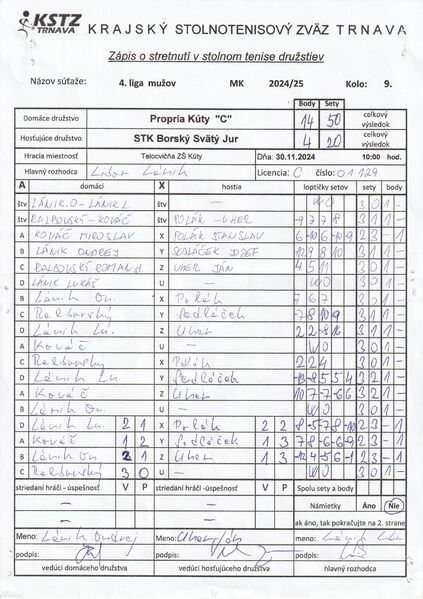 KSTZ TRNAVA
KRAJSKÝ STOLNOTENISOVÝ ZVÄZ TRNAVA
Zápis o stretnutí v stolnom tenise družstiev
Názov súťaže: 4. liga mužov MK 2024/25 Kolo: 9.
Body Sety
Domáce družstvo Propria Kúty "C" 14 50 celkový výsledok
Hosťujúce družstvo STK Borský Svätý Jur 4 20 celkový výsledok
Hracia miestnosť Telocvičňa ZŠ Kúty Dňa: 30.11.2024 10:00 hod.
Hlavný rozhodca Libor Lánik Licencia: C číslo: 01129
A domáci X hostia loptičky setov sety body
štv LÁNIK.O-LÁNIK L. štv — WO 3 0 1 -
štv RALBOVSKÝ-KOVÁČ štv POLÁK-UHER -9 7 7 8 3 1 1 -
A KOVÁČ MIROSLAV X POLÁK STANISLAV 2 3 - 1
B LÁNIK ONDREJ Y SEDLÁČEK JOZEF 3 1 1 -
C RALBOVSKÝ ROMAN Z UHER JÁN 4 5 11 3 0 1 -
D LÁNIK LUKÁŠ U — WO 3 0 1 -
B Lánik On. X Polák 7 6 7 3 0 1 -
C Ralbovský Y Sedláček 3 1 1 -
D Lánik Lu. Z Uher 3 1 1 -
A Kováč U — WO 3 0 1 -
C Ralbovský X Polák 2 2 4 3 0 1 -
D Lánik Lu Y Sedláček 3 2 1 -
A Kováč Z Uher 3 2 1 -
B Lánik On. U — WO 3 0 1 -
D Lánik Lu 2 1 X Polák 2 2 2 3 - 1
A Kováč 1 2 Y Sedláček 1 3 2 3 - 1
B Lánik On 2 1 Z Uher 1 3 2 3 - 1
C Ralbovský 3 0 U — WO 3 0 1 -
striedaní hráči - úspešnosť V P striedaní hráči - úspešnosť V P Spolu sety a body
— — Námietky Áno Nie
— — ak áno, tak pokračujte na 2. strane
Meno: Lánik Ondrej Meno: Uher Ján meno: Lánik
podpis: podpis: podpis:
vedúci domáceho družstva vedúci hosťujúceho družstva hlavný rozhodca